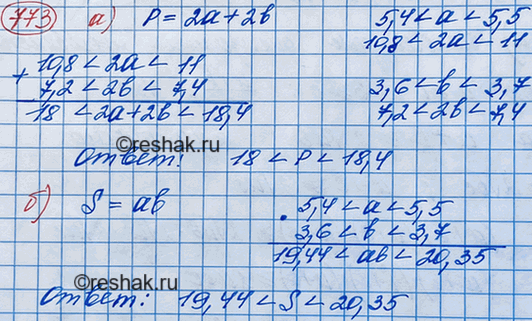 773 а) P = 2a + 2b
5,4 < a < 5,5
10,8 < 2a < 11
+ 10,8 < 2a < 11
7,2 < 2b < 7,4
18 < 2a + 2b < 18,4
3,6 < b < 3,7
7,2 < 2b < 7,4
©reshak.ru
Ответ: 18 < P < 18,4
б) S = ab
· 5,4 < a < 5,5
3,6 < b < 3,7
19,44 < ab < 20,35
©reshak.ru
Ответ: 19,44 < S < 20,35